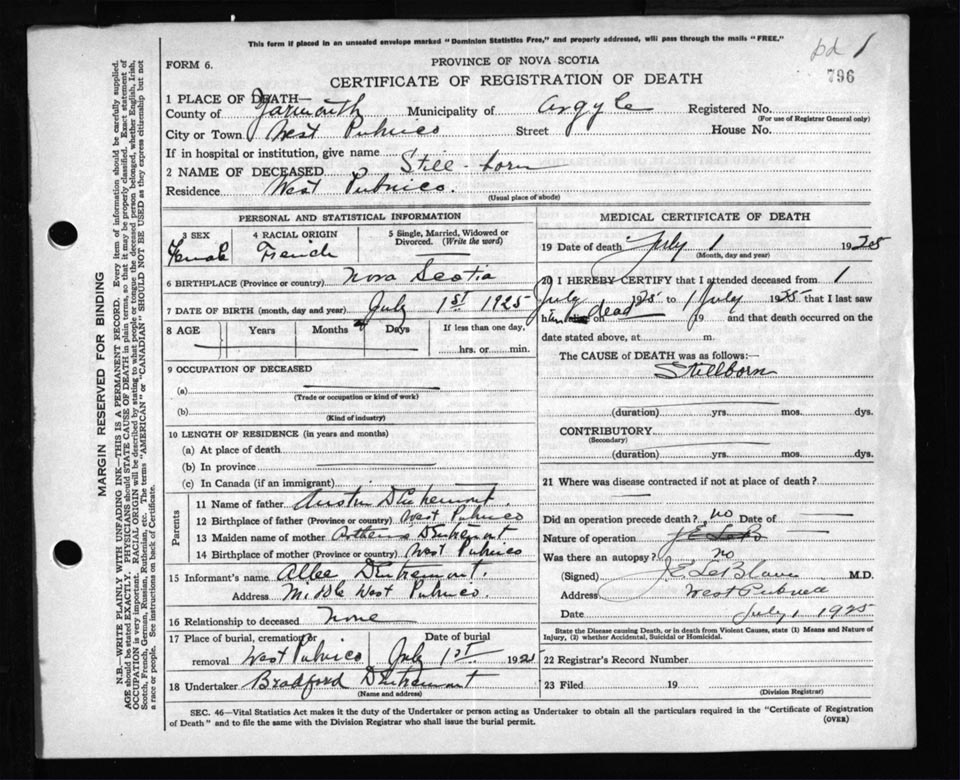 This form if placed in an unsealed envelope marked "Dominion Statistics Free," and properly addressed, will pass through the mails "FREE."
pd 1
796
FORM 6.
PROVINCE OF NOVA SCOTIA
CERTIFICATE OF REGISTRATION OF DEATH
1 PLACE OF DEATH—
County of Yarmouth Municipality of Argyle Registered No.
(For use of Registrar General only)
City or Town West Pubnico Street House No.
If in hospital or institution, give name
2 NAME OF DECEASED Still-born
Residence West Pubnico.
(Usual place of abode)
PERSONAL AND STATISTICAL INFORMATION
3 SEX 4 RACIAL ORIGIN 5 Single, Married, Widowed or Divorced. (Write the word)
Female French
6 BIRTHPLACE (Province or country) Nova Scotia
7 DATE OF BIRTH (month, day and year) July 1st 1925
8 AGE Years Months Days If less than one day,
hrs. or min.
9 OCCUPATION OF DECEASED
(a)
(Trade or occupation or kind of work)
(b)
(Kind of industry)
10 LENGTH OF RESIDENCE (in years and months)
(a) At place of death
(b) In province
(c) In Canada (if an immigrant)
Parents
11 Name of father Austin D'Entremont.
12 Birthplace of father (Province or country) West Pubnico
13 Maiden name of mother D'Entremont
14 Birthplace of mother (Province or country) West Pubnico
15 Informant's name Allee D'Entremont.
Address Middle West Pubnico.
16 Relationship to deceased None
17 Place of burial, cremation or removal West Pubnico Date of burial July 1st. 192
18 Undertaker Bradford D'Entremont
(Name and address)
MEDICAL CERTIFICATE OF DEATH
19 Date of death July 1 1925
(Month, day and year)
20 I HEREBY CERTIFY that I attended deceased from 1
July 1925 to 1 July 1925 that I last saw
h on dead 19 and that death occurred on the
date stated above, at m.
The CAUSE OF DEATH was as follows:—
Stillborn
(duration) yrs. mos. dys.
CONTRIBUTORY
(Secondary)
(duration) yrs. mos. dys.
21 Where was disease contracted if not at place of death?
Did an operation precede death? no Date of
Nature of operation
Was there an autopsy? no
(Signed) J.E. LeBlanc M.D.
Address West Pubnico
Date July 1 1925
State the Disease causing Death, or in death from Violent Causes, state (1) Means and Nature of
Injury, (2) whether Accidental, Suicidal or Homicidal.
22 Registrar's Record Number
23 Filed 19
(Division Registrar)
SEC. 46—Vital Statistics Act makes it the duty of the Undertaker or person acting as Undertaker to obtain all the particulars required in the "Certificate of Registration
of Death" and to file the same with the Division Registrar who shall issue the burial permit.
(OVER)
MARGIN RESERVED FOR BINDING
N.B.—WRITE PLAINLY WITH UNFADING INK—THIS IS A PERMANENT RECORD. Every item of information should be carefully supplied.
AGE should be stated EXACTLY. PHYSICIANS should STATE CAUSE OF DEATH in plain terms, so that it may be properly classified. Exact statement of
OCCUPATION is very important. RACIAL ORIGIN will be described by stating to what people or tongue the deceased person belonged, whether English, Irish,
Scotch, French, German, Russian, Ruthenian, etc. The terms "AMERICAN" or "CANADIAN" SHOULD NOT BE USED as they express citizenship but not
a race or people. See instructions on back of Certificate.